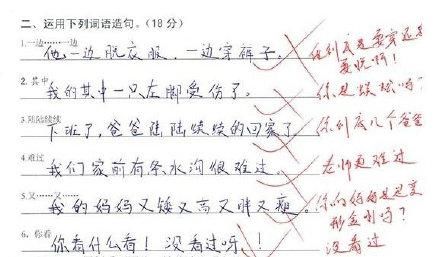 二、运用下列词语造句。(18分)
1.一边……一边
他一边脱衣服，一边穿裤子。
他到底是要穿还是要脱啊!
2.其中
我的其中一只左脚受伤了。
你是蜈蚣吗?
3.陆陆续续
下班了，爸爸陆陆续续的回家了
你到底几个爸爸
4.难过
我们家前有条水沟很难过。
老师更难过
5.又……又……
我的妈妈又矮又高又胖又瘦。
你的妈妈是是变形金刚吗?
6.你看
你看什么看! 没看过呀!!
没看过